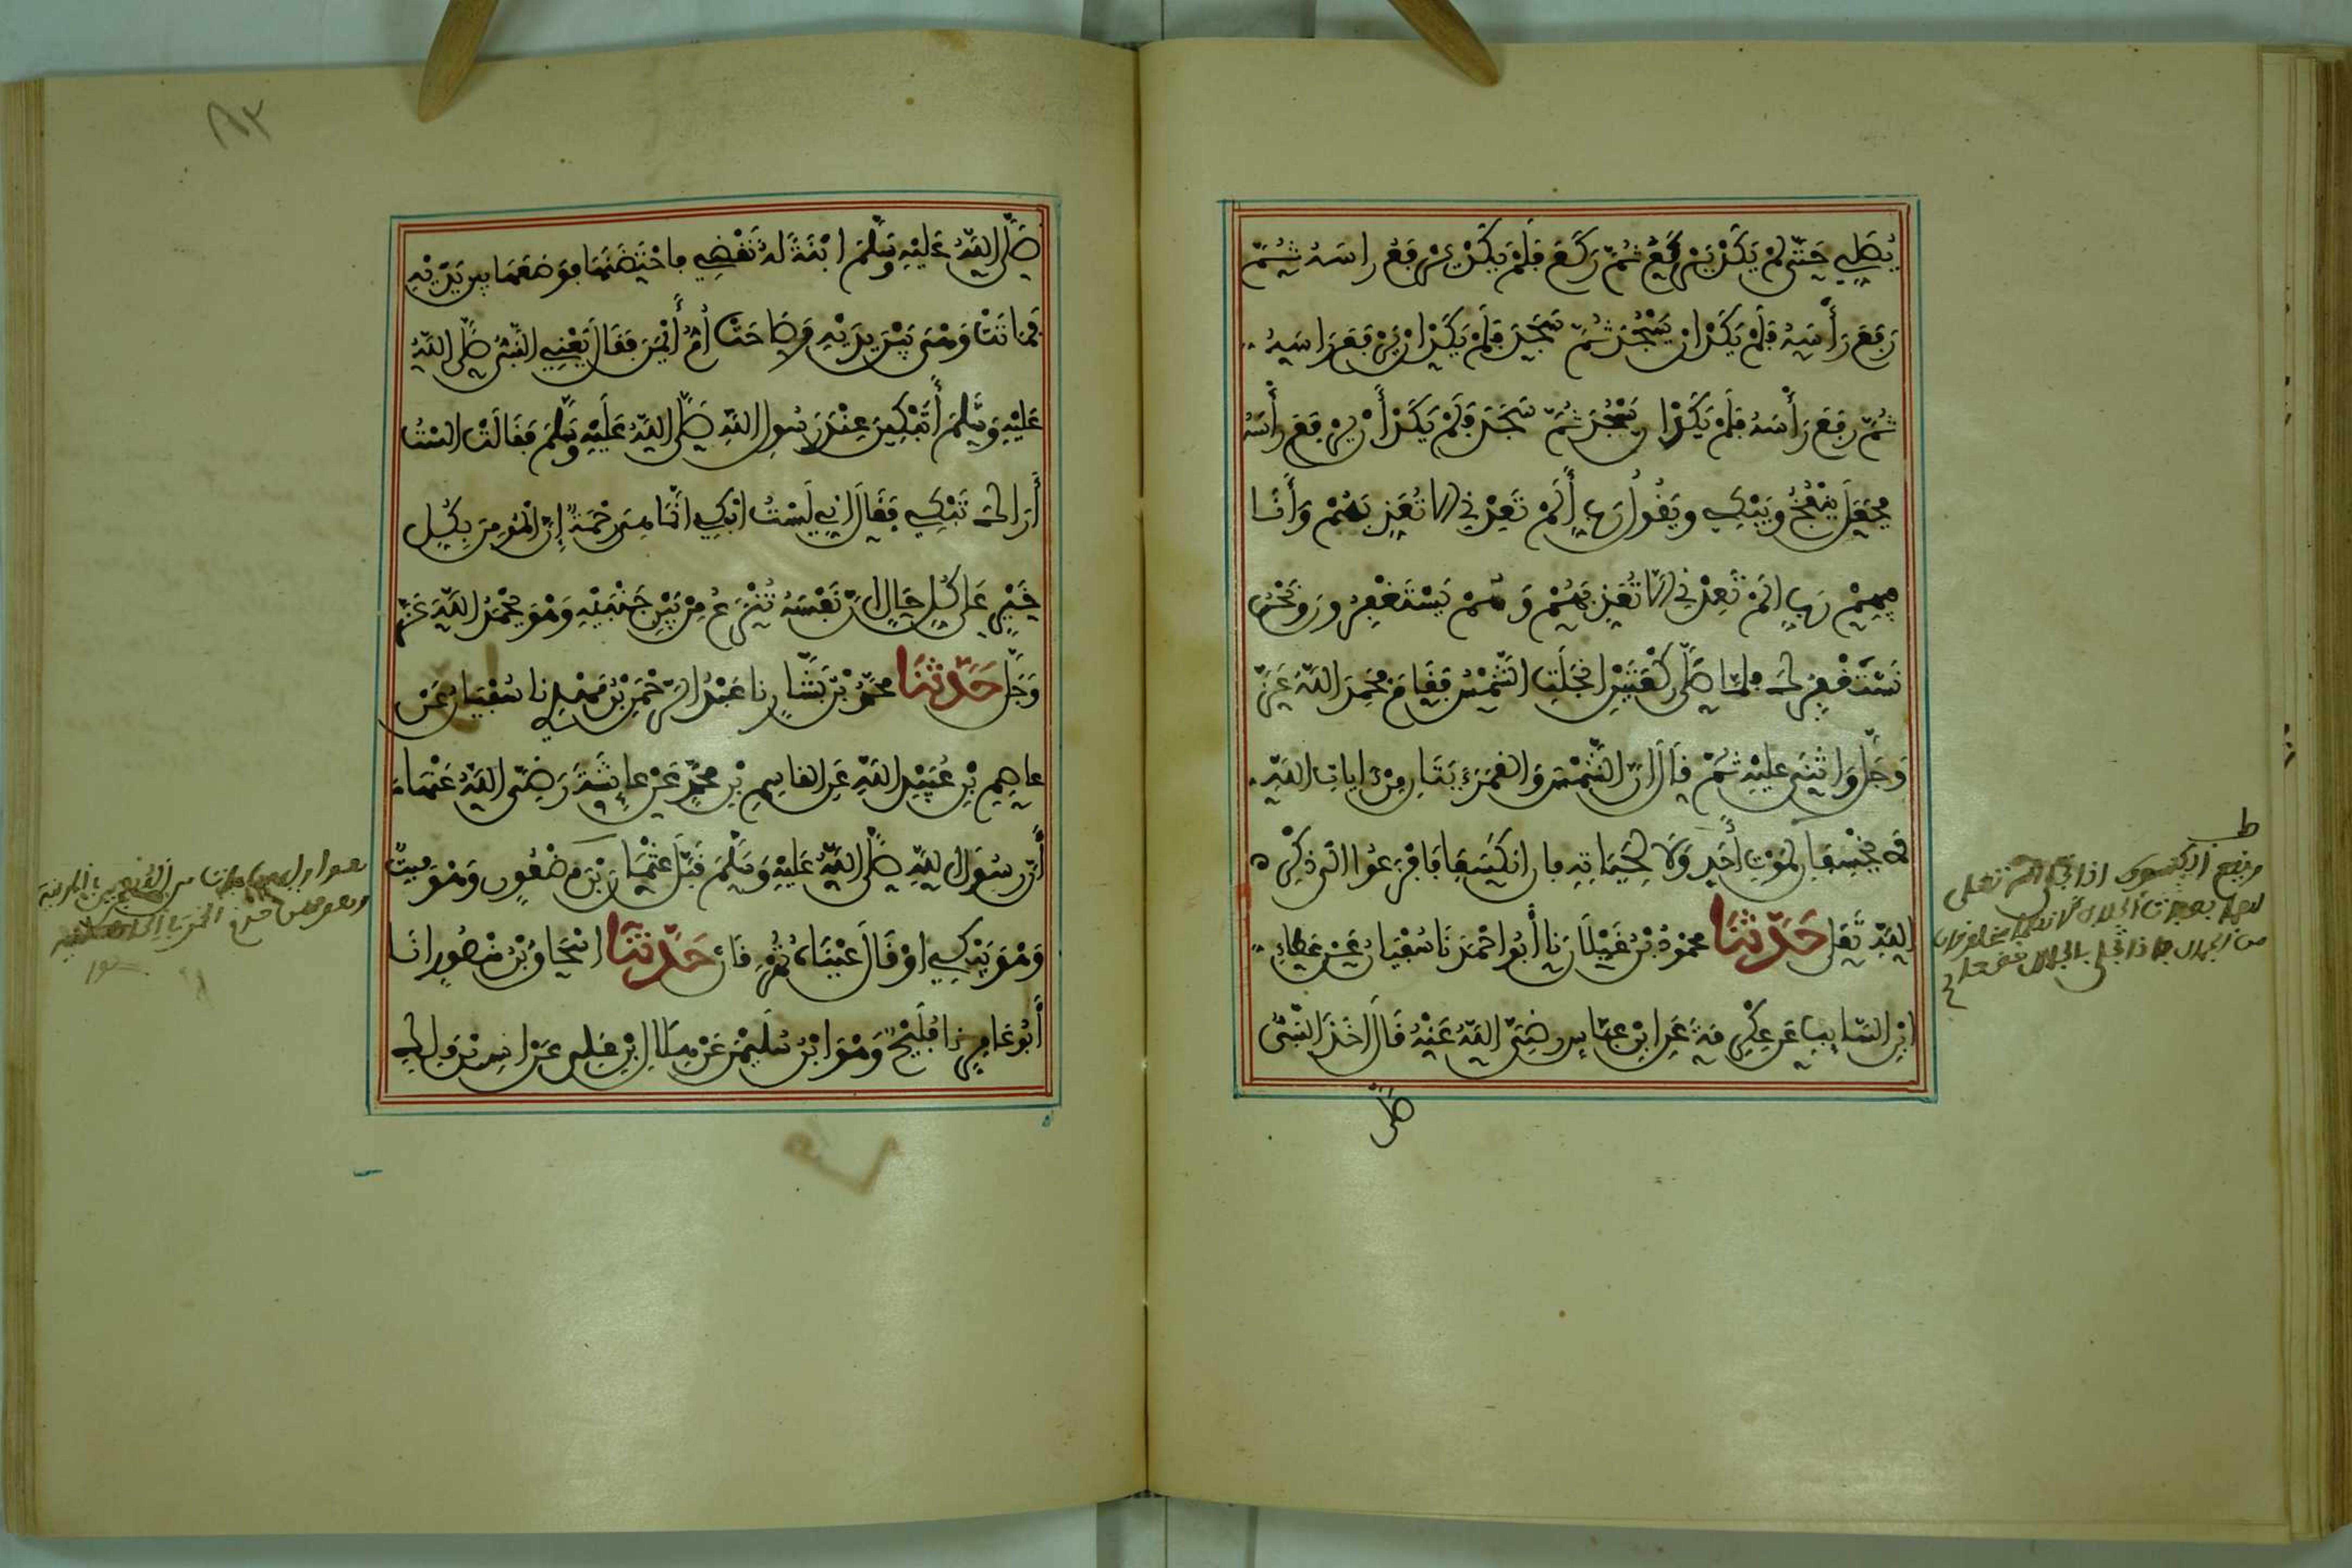 يُصَلِّي حَتَّى لَمْ يَكَدْ يَرْكَعُ ثُمَّ رَكَعَ فَلَمْ يَكَدْ يَرْفَعُ رَاسَهُ ثُمَّ
رَفَعَ رَأْسَهُ فَلَمْ يَكَدْ ان يَسْجُدَ ثُمَّ سَجَدَ فَلَمْ يَكَدْ ان يَرْفَعَ رَاسَهُ
ثُمَّ رَفَعَ رَأْسَهُ فَلَمْ يَكَدْ ان يَسْجُدَ ثُمَّ سَجَدَ فَلَمْ يَكَدْ أَنْ يَرْفَعَ رَأْسَهُ
فجَعَلَ يَنْفُخُ وَيَبْكِي وَيَقُولُ رَبِّ أَلَمْ تَعِدْنِي أَلَّا تُعَذِّبَهُمْ وَأَنَا
فِيهِمْ رَبِّ أَلَمْ تَعِدْنِي أَلَّا تُعَذِّبَهُمْ وَهُمْ يَسْتَغْفِرُونَ وَنَحْنُ
نَسْتَغْفِرُكَ فلمَّا صَلَّى رَكْعَتَيْنِ انْجَلَتِ الشَّمْسُ فَقَامَ فَحَمِدَ اللَّهَ عَزَّ
وَجَلَّ وَاثْنَى عَلَيْهِ ثُمَّ قَالَ انَّ الشَّمْسَ وَالْقَمَرَ ءَايَتَانِ مِنْ ءايَاتِ اللَّهِ
لَا يَنْخَسِفَانِ لِمَوْتِ أَحَدٍ وَلَا لِحَيَاتِهِ فَإِن انْكَسَفَا فَافْزَعُوا الَى ذِكْرِ
اللَّهِ تَعَلى حَدَّثَنَا مَحْمُودُ بْنُ غَيْلَانَ نا أَبُو احْمَدَ نَا سُفْيَانُ عَنْ عَطَاءِ
ابْنِ السَّايِبِ عَن عِكْرِمَةَ عَنِ ابْنِ عَبَّاسٍ رَضِيَ اللَّهُ عَنْهُ قَالَ اخَذَ النَّبِيُّ
صَلَّى
صَلَّى اللَّهُ عَلَيْهِ وَسَلَّمَ ابْنَةً لَهُ تَقْضِي فاحْتَضَنَهَا فَوَضَعَهَا بين يَدَيْهِ
فَمَاتَتْ وَهْيَ بَيْنَ يَدَيْهِ وَصَاحَتْ أُمُّ أَيْمَنَ فَقَالَ يَعْنِي النَّبِيُّ صَلَّى اللَّهُ
عَلَيْهِ وَسَلَّمَ أَتَبْكِينَ عِنْدَ رَسُولِ اللَّهِ صَلَّى اللَّهُ عَلَيْهِ وَسَلَّمَ فَقَالَتْ الَسْتُ
أَرَاكَ تَبْكِي فَقَالَ انِّي لَسْتُ ابْكِي انَّمَا هِيَ رَحْمَةٌ إِنَّ الْمُومِنَ بِكُلِّ
خَيْرٍ عَلَى كُلِّ حَالٍ انَّ نَفْسَهُ تُنْزَعُ مِنْ بَيْنِ جَنْبَيْهِ وَهْوَ يَحْمَدُ اللَّهَ عَزَّ
وَجَلَّ حَدَّثَنَا مُحَمَّدُ بْنُ بَشَّارٍ نا عَبْدُ الرَّحْمَنِ بْنُ مَهْدِيٍّ نا سُفْيَانُ عَنْ
عاصِمِ بْنِ عُبَيْدِ اللَّهِ عَنِ القاسِمِ بْنِ مُحَمَّدٍ عَنْ عايِشَةَ رَضِيَ اللَّهُ عَنْهَا
أَنَّ رَسُولَ اللَّهِ صَلَّى اللَّهُ عَلَيْهِ وَسَلَّمَ قَبَّلَ عُثْمَانَ بْنَ مَضْعُونٍ وَهْوَ مَيِّتٌ
وَهْوَ يَبْكِي اوْ قَالَ عَيْنَاهُ تُهْرِقَانِ حَدَّثَنَا اسْحَاقُ بْنُ مَنْصُورٍ انَا
أَبُو عَامِرٍ نا فُلَيْحٌ وَهْوَ ابْنُ سُلَيْمَنَ عَنْ هِلَالِ ابْنِ عَلِي عَنْ انَسِ بْنِ مَالِكٍ